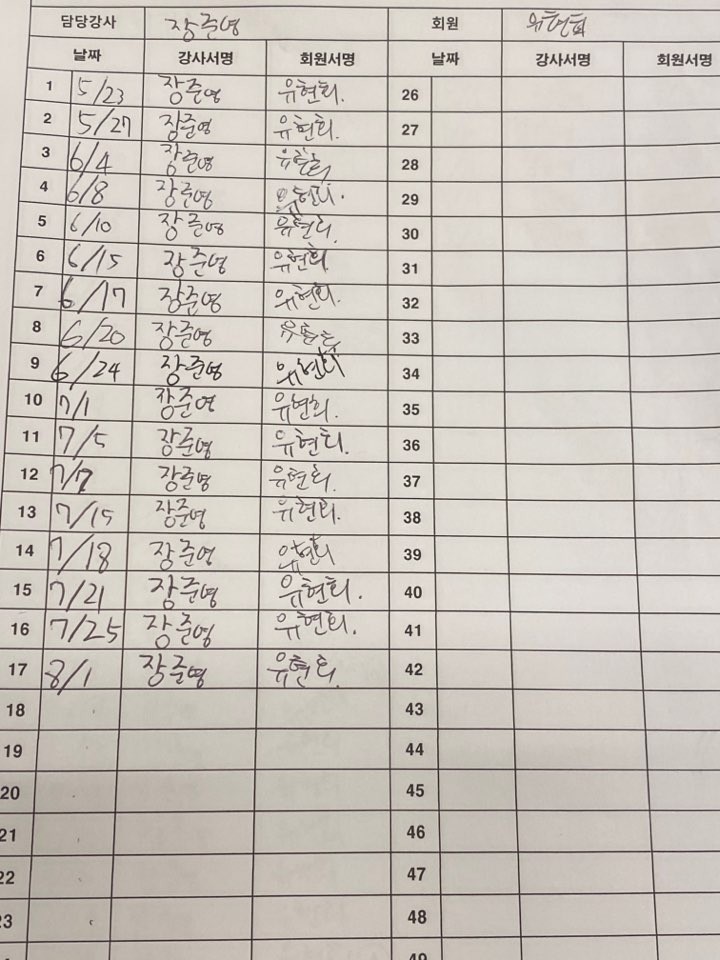 담당강사 장준영 회원 유현희
날짜 강사서명 회원서명 날짜 강사서명 회원서명
1 5/23 장준영 유현희. 26
2 5/27 장준영 유현희. 27
3 6/4 장준영 유현희. 28
4 6/8 장준영 유현희. 29
5 6/10 장준영 유현희. 30
6 6/15 장준영 유현희 31
7 6/17 장준영 유현희. 32
8 6/20 장준영 유현희 33
9 6/24 장준영 유현희 34
10 7/1 장준영 유현희. 35
11 7/5 장준영 유현희. 36
12 7/7 장준영 유현희. 37
13 7/15 장준영 유현희. 38
14 7/18 장준영 유현희 39
15 7/21 장준영 유현희. 40
16 7/25 장준영 유현희. 41
17 8/1 장준영 유현희. 42
18 43
19 44
20 45
21 46
22 47
23 48
49